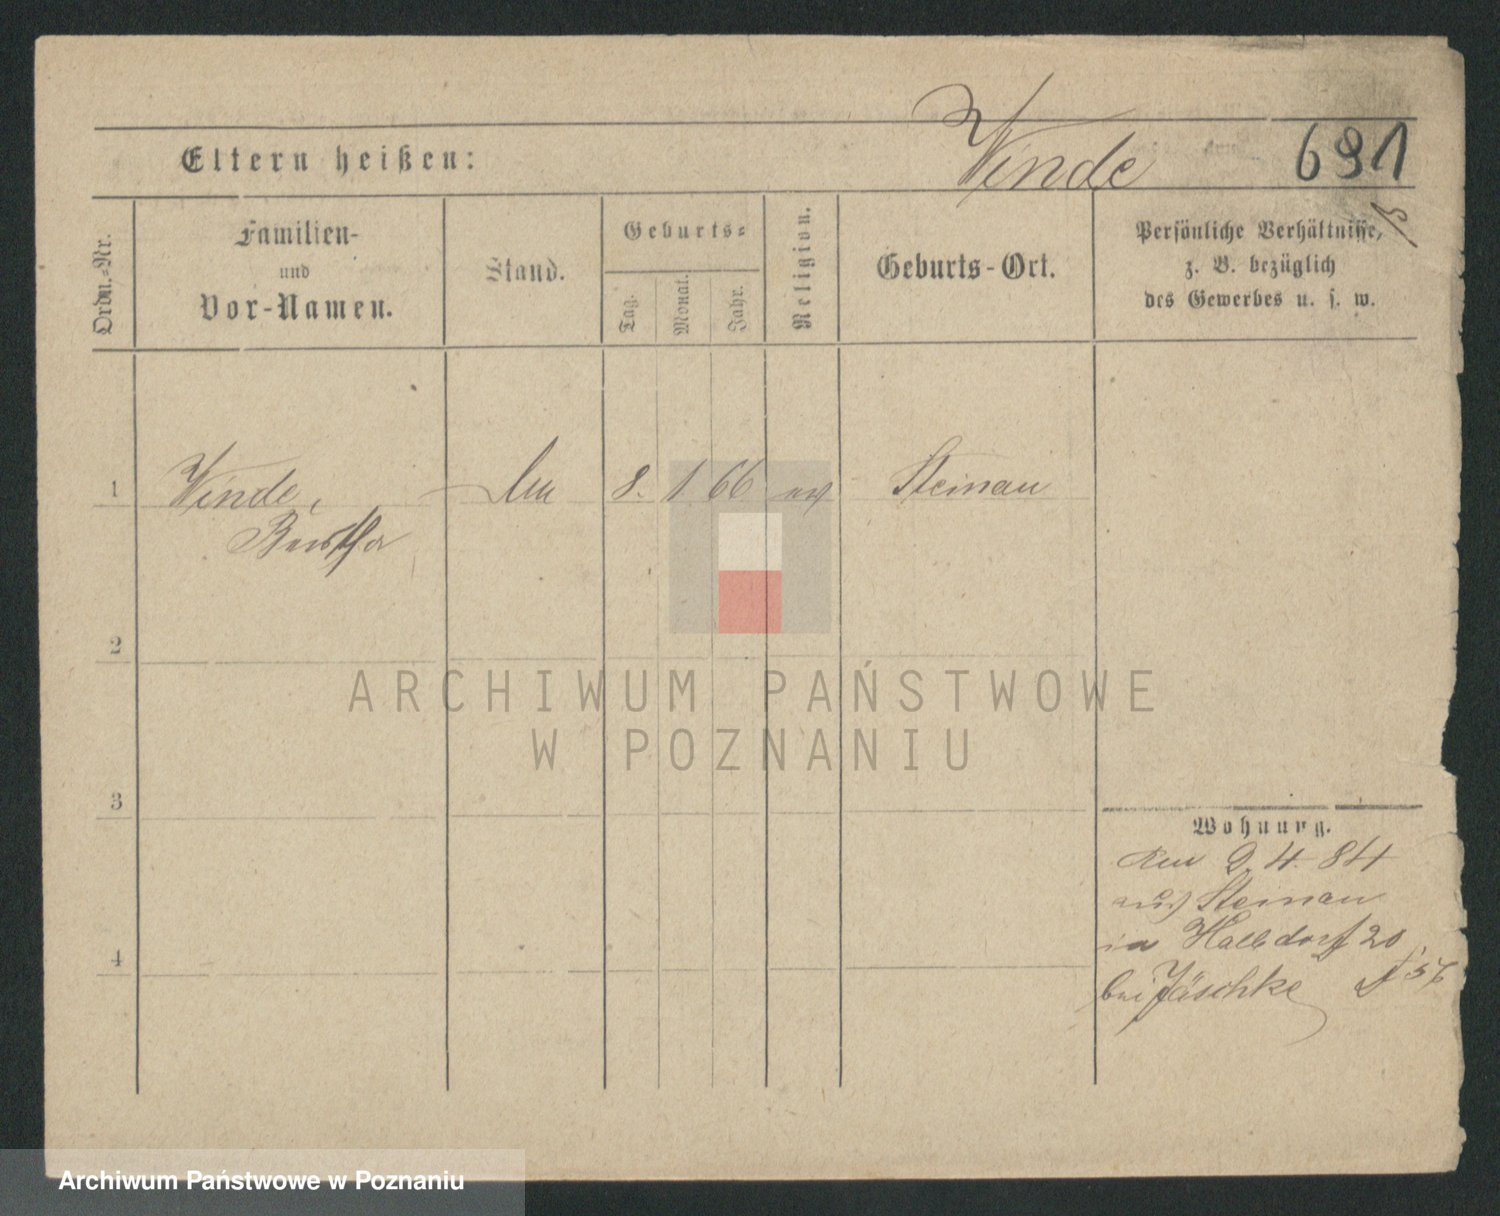 Winde 691
Eltern heißen:
Ordn.-Nr.
Familien-
und
Vor-Namen.
Stand.
Geburts-
Tag.
Monat.
Jahr.
Religion.
Geburts-Ort.
Persönliche Verhältnisse,
z. B. bezüglich
des Gewerbes u. s. w.
1 Winde, 8. 1 66 ev Steinau
Bertha
2
3
4
Wohnung.
den 2.4.84
aus Steinau
in Halbdorf 20
bei Jäschke
ARCHIWUM PAŃSTWOWE
W POZNANIU
Archiwum Państwowe w Poznaniu